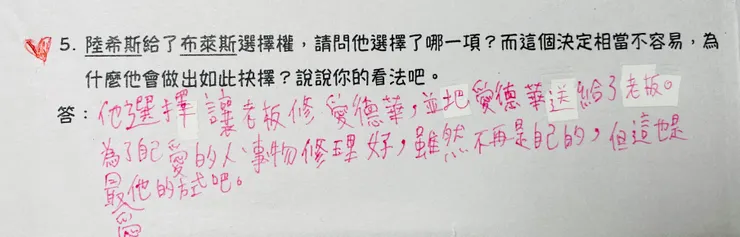 5. 陸希斯給了布萊斯選擇權,請問他選擇了哪一項?而這個決定相當不容易,為
什麼他會做出如此抉擇?說說你的看法吧。
答:他選擇讓老板修愛德華,並把愛德華送給了老板。
為了自己愛的人、事物修理好,雖然不再是自己的,但這也是
最他的方式吧。
愛